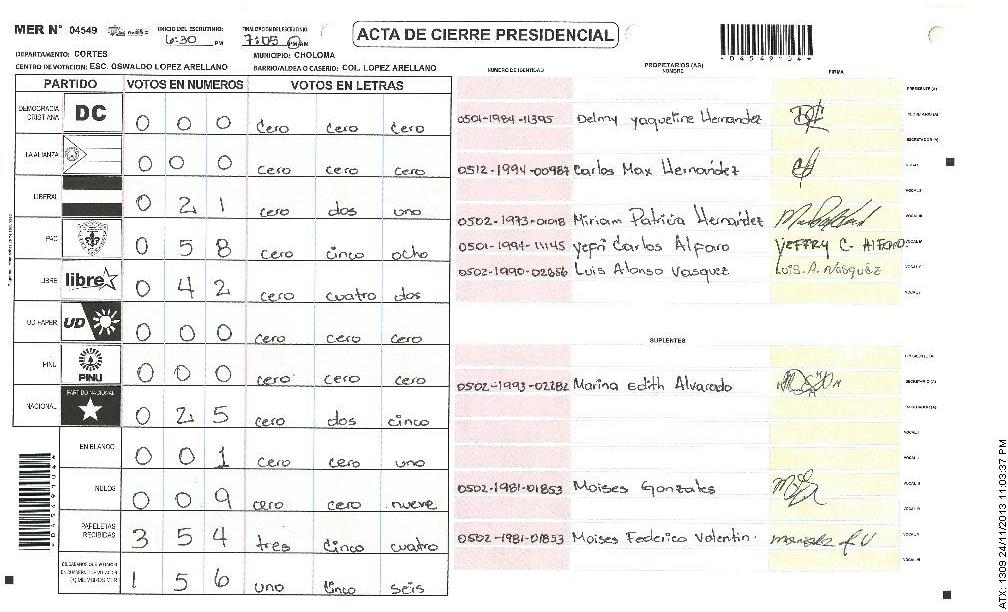 MER N° 04549 INICIO DEL ESCRUTINIO: 6:30 PM FINALIZACION DEL ESCRUTINIO: 7:05 PM AM ACTA DE CIERRE PRESIDENCIAL
DEPARTAMENTO: CORTES MUNICIPIO: CHOLOMA
CENTRO DE VOTACION: ESC. OSWALDO LOPEZ ARELLANO BARRIO/ALDEA O CASERIO: COL. LOPEZ ARELLANO
PARTIDO VOTOS EN NUMEROS VOTOS EN LETRAS
DEMOCRACIA CRISTIANA DC 0 0 0 cero cero cero
LA ALIANZA 0 0 0 cero cero cero
LIBERAL 0 2 1 cero dos uno
PAC 0 5 8 cero cinco ocho
LIBRE libre 0 4 2 cero cuatro dos
UD-FAPER UD 0 0 0 cero cero cero
PINU PINU 0 0 0 cero cero cero
NACIONAL PARTIDO NACIONAL 0 2 5 cero dos cinco
EN BLANCO 0 0 1 cero cero uno
NULOS 0 0 9 cero cero nueve
PAPELETAS RECIBIDAS 3 5 4 tres cinco cuatro
CIUDADANOS QUE VOTARON EN CUADERNO DE VOTACION (+) MIEMBROS MER 1 5 6 uno cinco seis
*04549104*
NUMERO DE IDENTIDAD PROPIETARIOS (AS) NOMBRE FIRMA
PRESIDENTE (A)
0501-1984-11395 Delmy yaqueline Hernandez SECRETARIO (A)
ESCRUTADOR (A)
0512-1994-00987 Carlos Max Hernandez VOCAL I
VOCAL II
0502-1973-01018 Miriam Patricia Hernandez VOCAL III
0501-1994-11145 yefri Carlos Alfaro YEFFRY C. Alfaro VOCAL IV
0502-1990-02656 Luis Alonso Vasquez Luis. A. Vasquez VOCAL V
SUPLENTES
PRESIDENTE (A)
0502-1993-02282 Marina Edith Alvarado SECRETARIO (A)
ESCRUTADOR (A)
VOCAL I
VOCAL II
0502-1981-01853 Moises Gonzales VOCAL III
VOCAL IV
0502-1981-01853 Moises Federico Valentin. VOCAL V
*04549104*
ATX: 1309 24/11/2013 11:03:37 PM